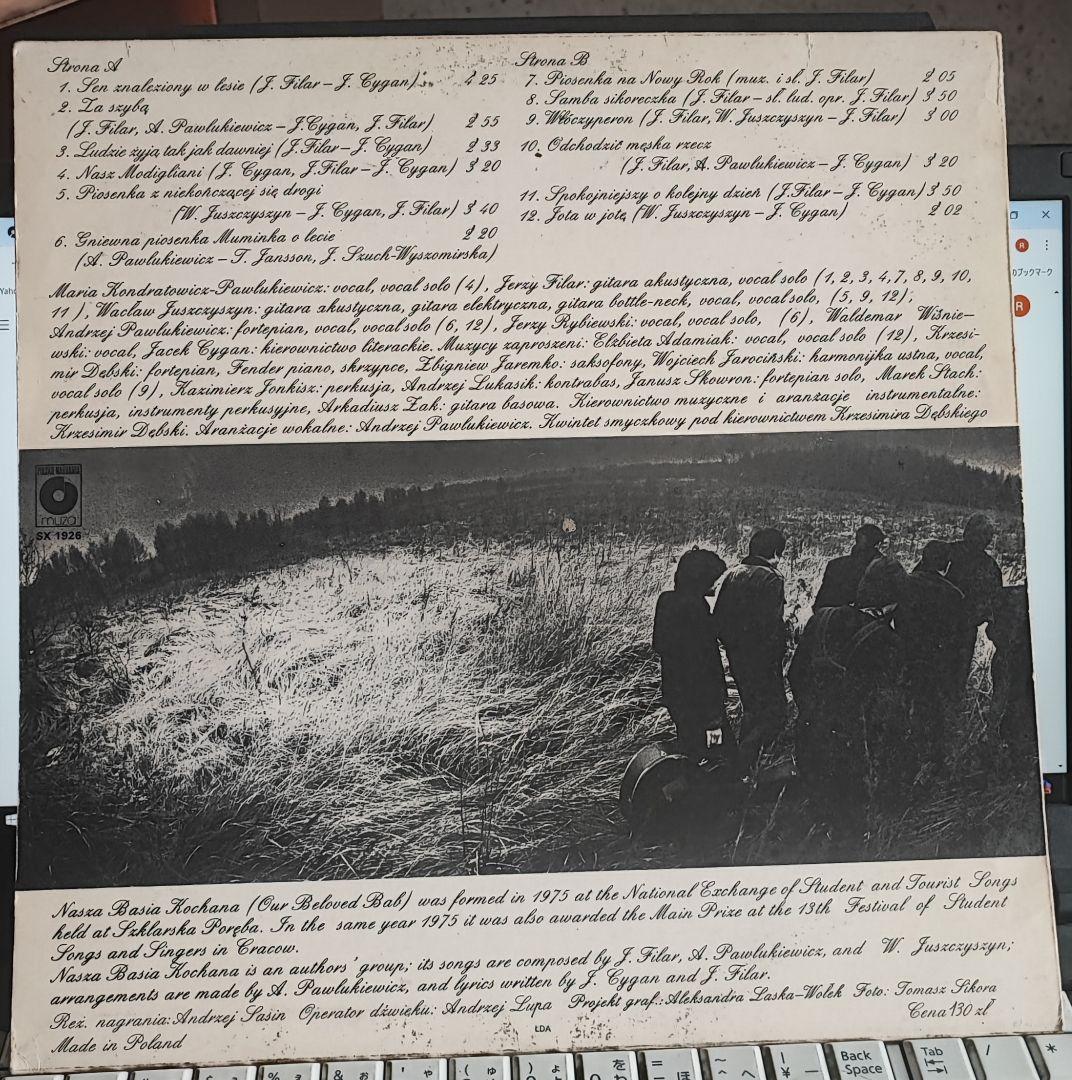 Strona A
1. Sen znaleziony w lesie (J. Filar – J. Cygan) 4 25
2. Za szybą
(J. Filar, A. Pawlukiewicz – J. Cygan, J. Filar) 2 55
3. Ludzie żyją tak jak dawniej (J. Filar – J. Cygan) 2 33
4. Nasz Modigliani (J. Cygan, J. Filar – J. Cygan) 3 20
5. Piosenka z niekończącej się drogi
(W. Juszczyszyn – J. Cygan, J. Filar) 3 40
6. Gniewna piosenka Muminka o lecie 2 20
(A. Pawlukiewicz – T. Jansson, J. Szuch-Wyszomirska)
Strona B
7. Piosenka na Nowy Rok (muz. i sł. J. Filar) 2 05
8. Samba sikoreczka (J. Filar – sł. lud. opr. J. Filar) 3 50
9. Włóczyperon (J. Filar, W. Juszczyszyn – J. Filar) 3 00
10. Odchodzić męska rzecz
(J. Filar, A. Pawlukiewicz – J. Cygan) 3 20
11. Spokojniejszy o kolejny dzień (J. Filar – J. Cygan) 3 50
12. Jota w jotę (W. Juszczyszyn – J. Cygan) 2 02
Maria Kondratowicz-Pawlukiewicz: vocal, vocal solo (4), Jerzy Filar: gitara akustyczna, vocal solo (1, 2, 3, 4, 7, 8, 9, 10,
11), Wacław Juszczyszyn: gitara akustyczna, gitara elektryczna, gitara bottle-neck, vocal, vocal solo, (5, 9, 12),
Andrzej Pawlukiewicz: fortepian, vocal, vocal solo (6, 12), Jerzy Rybiewski: vocal, vocal solo, (6), Waldemar Wiśnie–
wski: vocal, Jacek Cygan: kierownictwo literackie. Muzycy zaproszeni: Elżbieta Adamiak: vocal, vocal solo (12), Krzesi-
mir Dębski: fortepian, Fender piano, skrzypce, Zbigniew Jaremko: saksofony, Wojciech Jarociński: harmonijka ustna, vocal,
vocal solo (9), Kazimierz Jonkisz: perkusja, Andrzej Łukasik: kontrabas, Janusz Skowron: fortepian solo, Marek Stach:
perkusja, instrumenty perkusyjne, Arkadiusz Żak: gitara basowa. Kierownictwo muzyczne i aranżacje instrumentalne:
Krzesimir Dębski. Aranżacje wokalne: Andrzej Pawlukiewicz. Kwintet smyczkowy pod kierownictwem Krzesimira Dębskiego
POLSKIE NAGRANIA
muza
SX 1926
Nasza Basia Kochana (Our Beloved Bab) was formed in 1975 at the National Exchange of Student and Tourist Songs
held at Szklarska Poręba. In the same year 1975 it was also awarded the Main Prize at the 13th Festival of Student
Songs and Singers in Cracow.
Nasza Basia Kochana is an authors' group; its songs are composed by J. Filar, A. Pawlukiewicz, and W. Juszczyszyn;
arrangements are made by A. Pawlukiewicz, and lyrics written by J. Cygan and J. Filar.
Reż. nagrania: Andrzej Sasin Operator dźwięku: Andrzej Lupa Projekt graf.: Aleksandra Laska-Wołek Foto: Tomasz Sikora
Cena 130 zł
ŁDA
Made in Poland
Back
Space
Tab